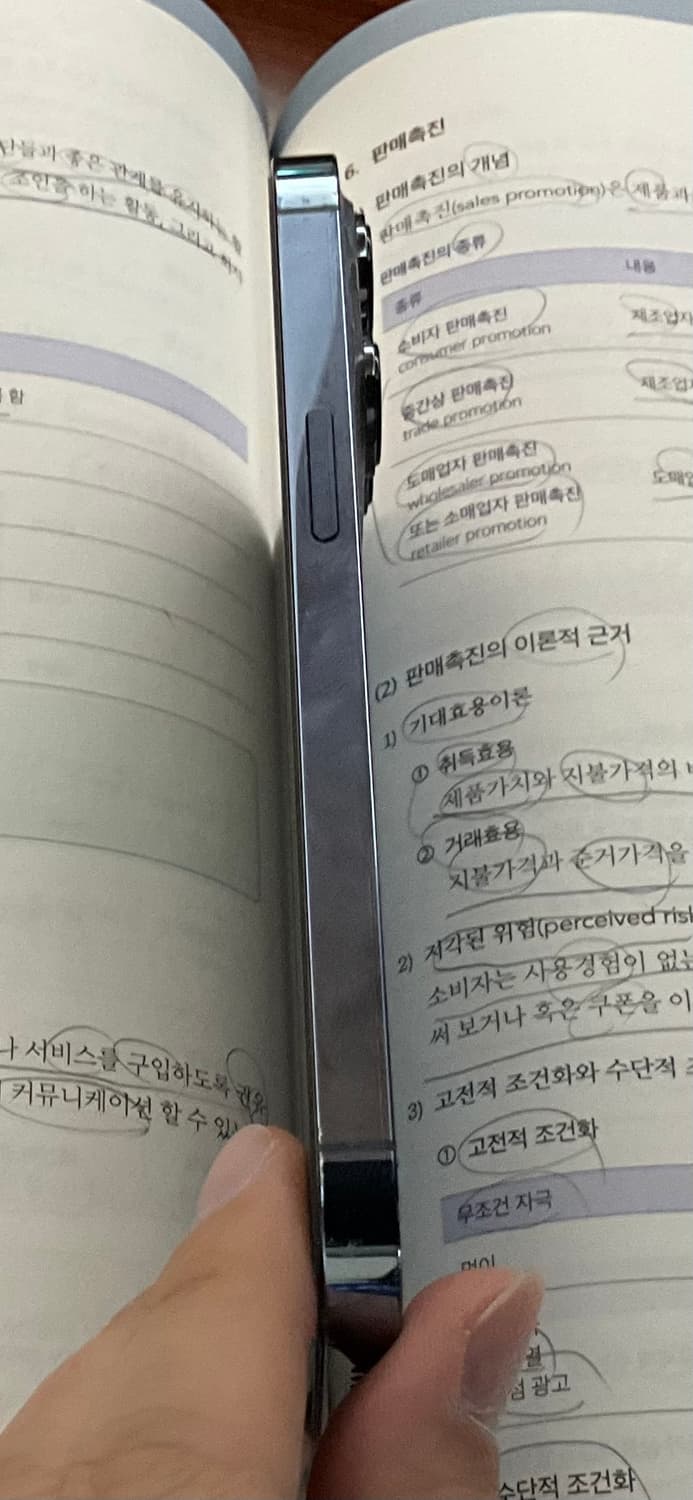 좋은 관계를 유지하는
조인을 하는 활동, 그리고
함
나 서비스를 구입하도록 권유
커뮤니케이션 할 수 있
6. 판매촉진
판매촉진의 개념
판매촉진(sales promotion)은 제품과
판매촉진의 종류
종류 내용
소비자 판매촉진 제조업자
consumer promotion
중간상 판매촉진 제조업
trade promotion
도매업자 판매촉진 도매업
wholesaler promotion
또는 소매업자 판매촉진
retailer promotion
(2) 판매촉진의 이론적 근거
1) 기대효용이론
① 취득효용
제품가치와 지불가격의
② 거래효용
지불가격과 준거가격을
2) 지각된 위험(perceived risk
소비자는 사용경험이 없는
써 보거나 혹은 쿠폰을 이
3) 고전적 조건화와 수단적
① 고전적 조건화
무조건 자극
먹이
광고
수단적 조건화